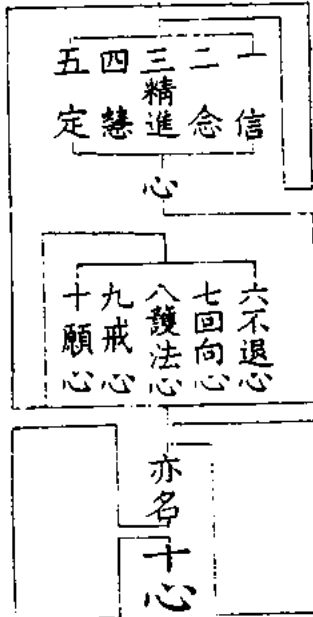 一信
二念
三精進
四慧
五定
心
六不退心
七回向心
八護法心
九戒心
十願心
亦名
十心